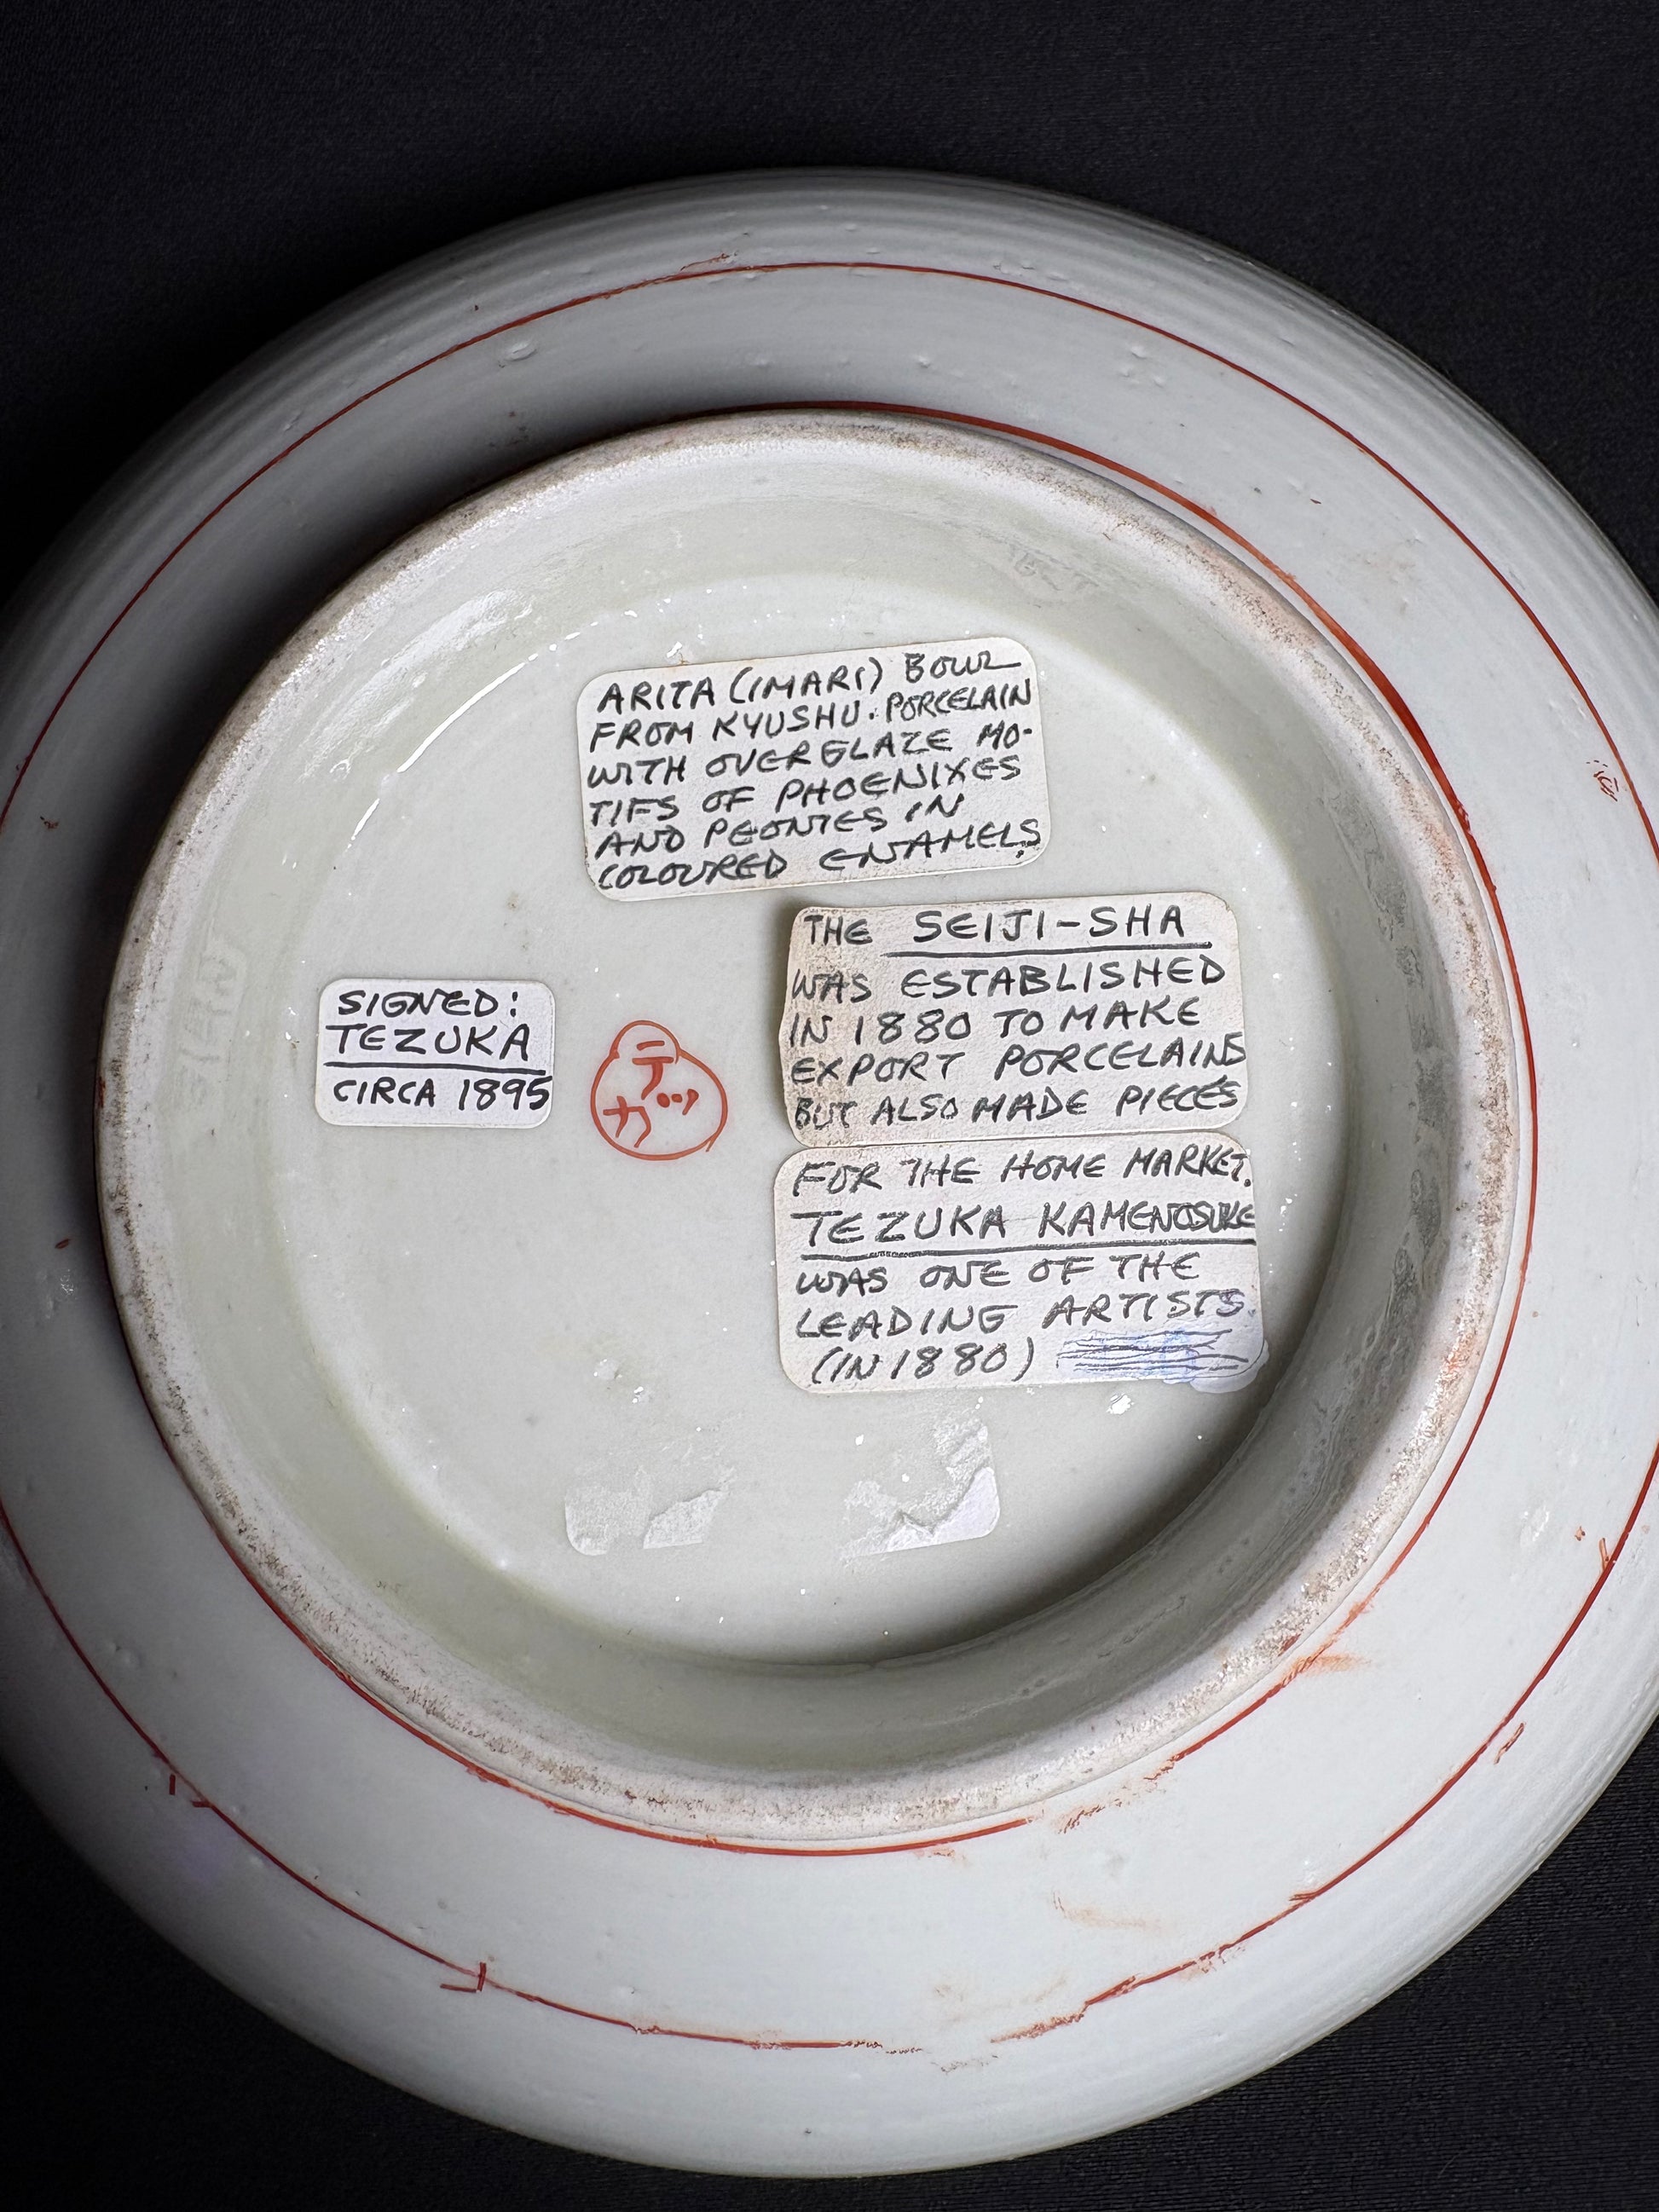 ARITA (IMARI) BOWL
FROM KYUSHU. PORCELAIN
WITH OVERGLAZE MO-
TIFS OF PHOENIXES
AND PEONIES IN
COLOURED ENAMELS.
THE SEIJI-SHA
WAS ESTABLISHED
IN 1880 TO MAKE
EXPORT PORCELAINS
BUT ALSO MADE PIECES
FOR THE HOME MARKET.
TEZUKA KAMENOSUKE
WAS ONE OF THE
LEADING ARTISTS.
(IN 1880)
SIGNED:
TEZUKA
CIRCA 1895
テ
カ